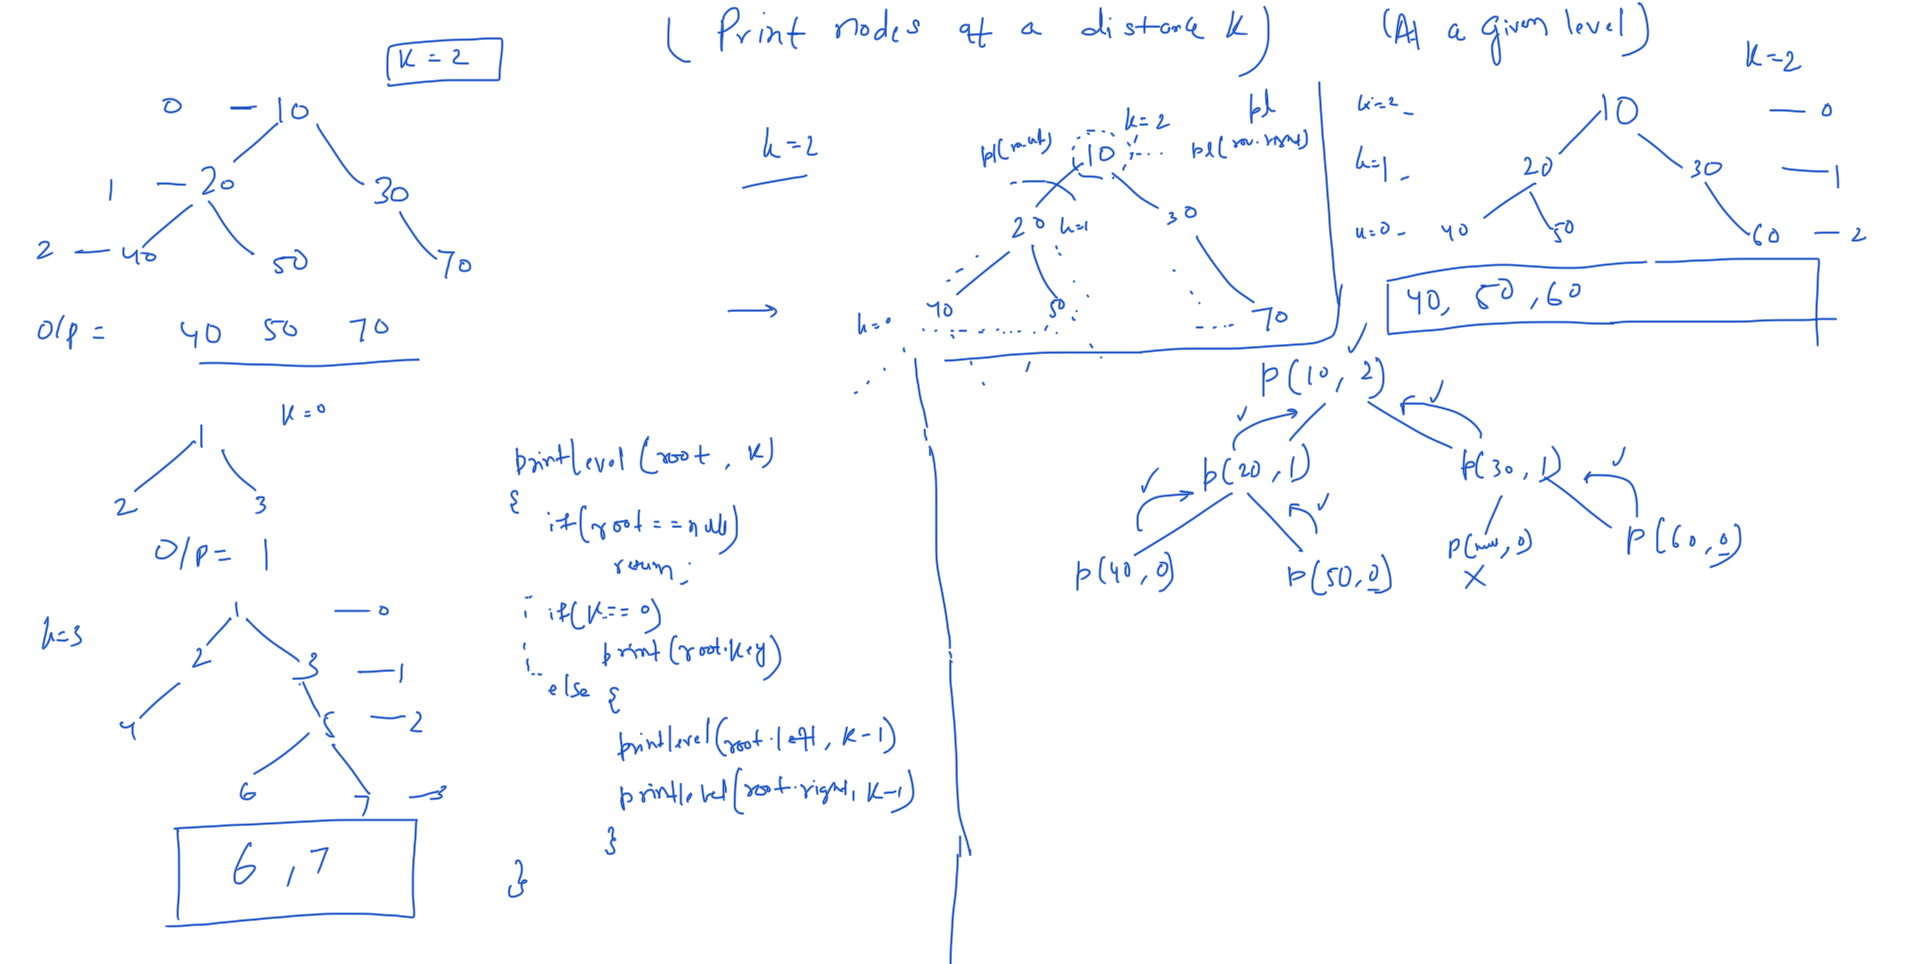 ( Print nodes at a distance K ) (At a given level)
K = 2
0 — 10
1 — 20 30
2 — 40 50 70
O/p = 40 50 70
K = 0
1
2 3
O/P = 1
k=3
1 — 0
2 3 — 1
4 5 — 2
6 7 — 3
6 , 7
printlevel (root , K)
{
if(root == null)
return ;
if(K == 0)
print (root.key)
else {
printlevel(root.left, K-1)
printlevel(root.right, K-1)
}
}
k = 2
k = 2 pl
10 pl(root.right)
20 k=1 30
k=0 40 50 70
K=2
k=2 - 10 — 0
k=1 - 20 30 — 1
k=0 - 40 50 60 — 2
40, 50 , 60
p(10, 2)
p(20, 1) p(30, 1)
p(40, 0) p(50, 0) p(null, 0) p(60, 0)
X